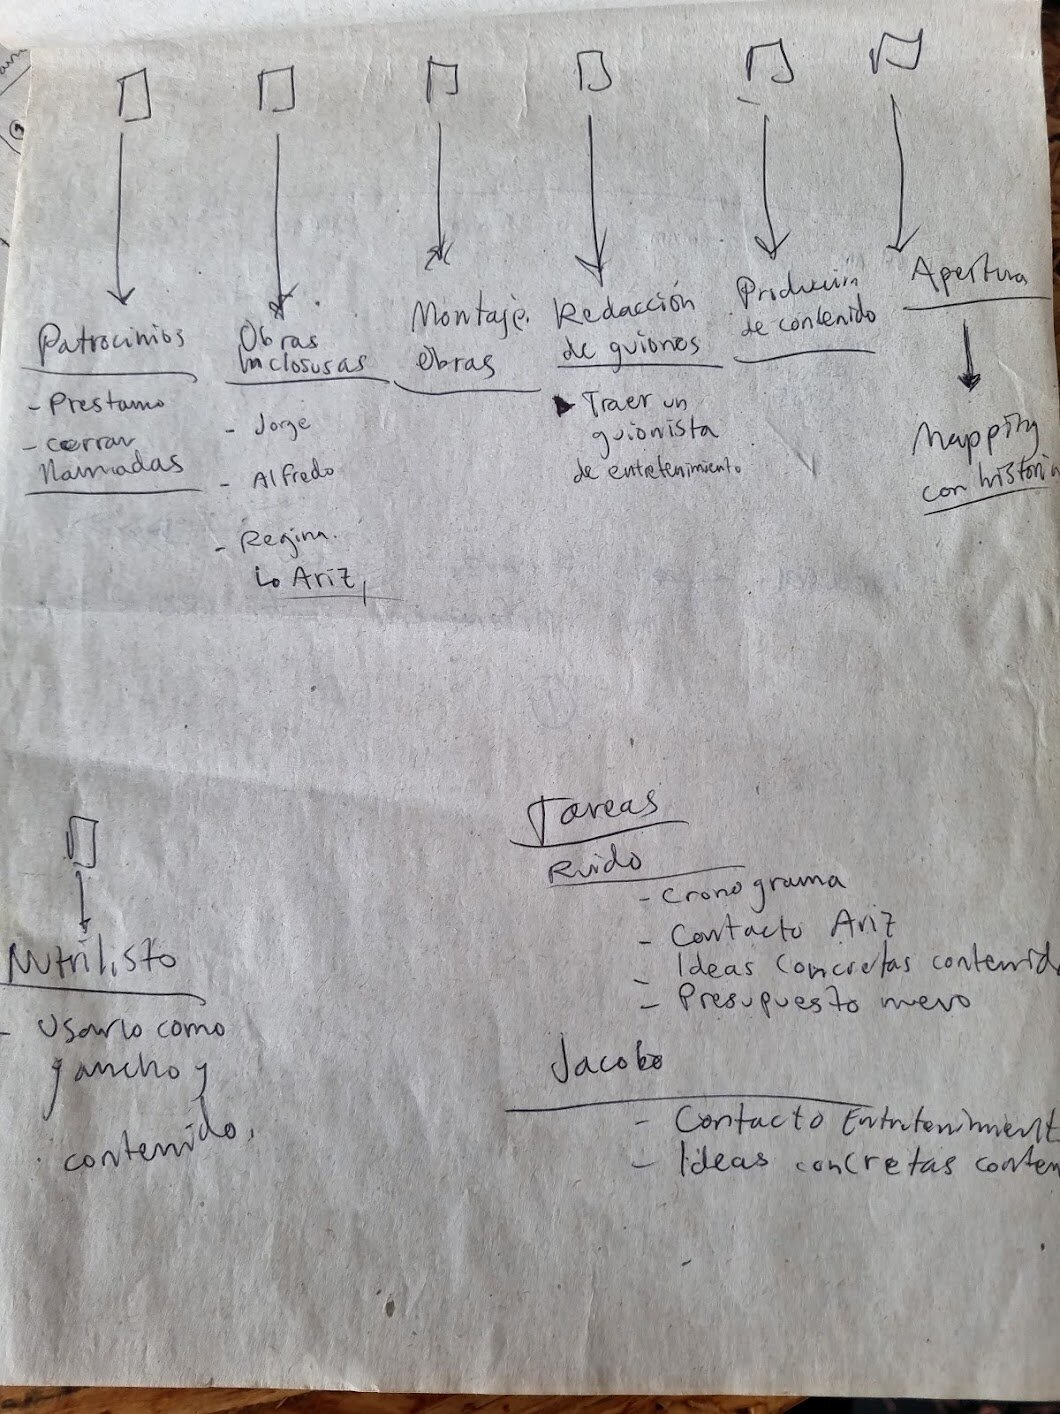 Patrocinios
- Prestamo
- cerrar
llamadas
Obras
Inclosusas
- Jorge
- Alfredo
- Regina.
Lo Ariz,
Montaje.
Obras
Redacción
de guiones
Traer un
guionista
de entretenimiento
Producción
de contenido
Apertura
Mapping
con histori
Nutrilisto
- Usarlo como
gancho y
contenido,
Tareas
Ruido
- Cronograma
- Contacto Ariz
- Ideas concretas contenid
- Presupuesto nuevo
Jacobo
- Contacto Entretenimient
- Ideas concretas conten